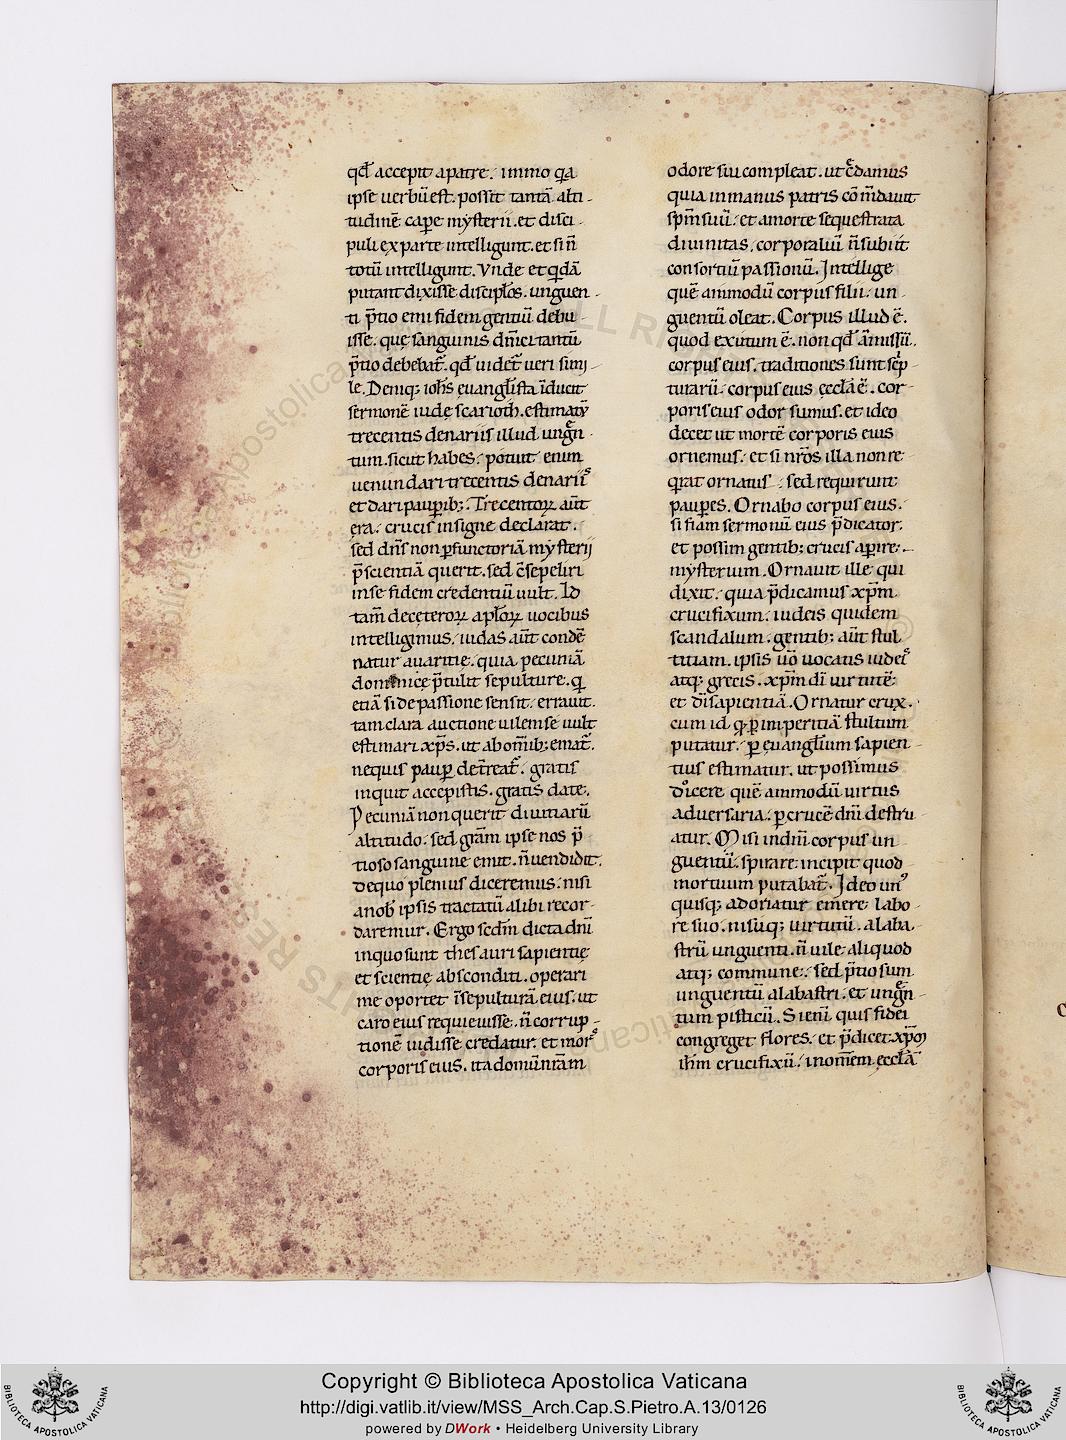 qđ accepit apatre. immo qa
ipse uerbū est. possit tantā alti-
tudinē cape mysterii. et disci-
puli ex parte intelligunt. et si ñ
totū intelligunt. Vnde et qdā
putant dixisse discipłos. unguen-
ti p̄tio emi fidem gentiū debu-
isse. quę sanguinis dñici tantū
p̄tio debebat̄. qđ uidet̄ ueri simi-
le. Deniq; ioħs euangłista īducit
sermonē iudę scarioth. estimaty
trecentis denariis illud ungn̄-
tum. sicut habes. potuit enim
uenundari trecentis denariis
et dari paupib;. Trecentoꝝ aūt
ęra. crucis insigne declarat.
sed dñs non pfunctoriā mysterii
p̄scientiā querit. sed c̄sepeliri
inse fidem credentiū uult. Id
tam̄ decęteroꝝ apłoꝝ uocibus
intelligimus. iudas aūt condē
natur auaritię. quia pecuniā
dominicę p̄tulit sepulturę. q
etiā si de passione sensit. errauit.
tam clara auctione uilem se uult
estimari xp̄s. ut abom̄ib; emat̄.
nequis paup det̄reat̄. gratis
inquit accepistis. gratis date.
Pecuniā non querit diuitiarū
altitudo. sed grām ipse nos p̄
tioso sanguine emit. ñ uendidit.
dequo plenius diceremus. nisi
anob ipsis tractatū alibi recor-
daremur. Ergo scdm̄ dicta dñi
inquo sunt thesauri sapientię
et scientię absconditi. operari
me oportet īsepulturā eius. ut
caro eius requieuisse. ñ corrup-
tionē uidisse credatur. et mors
corporis eius. ita domū nr̄am
odore sui compleat. ut c̄damus
quia inmanus patris com̄dauit
sp̄m suū. et amorte sequestrata
diuinitas. corporaliū ñ subiit
consortiū passionū. Intellige
quē ammodū corpus filii. un-
guentū oleat. Corpus illud ē.
quod exutum ē. non qđ āmissū.
corpus eius. traditiones sunt sc̄p
turarū. corpus eius ęccła ē. cor-
poris eius odor sumus. et ideo
decet ut mortē corporis eius
ornemus. et si nr̄os illa non re-
qrat ornatus. sed requirunt
paupes. Ornabo corpus eius.
si fiam sermonū eius p̄dicator.
et possim gentib; crucis apire
mysterium. Ornauit ille qui
dixit. quia p̄dicamus xp̄m
crucifixum. iudeis quidem
scandalum. gentib; aūt stul
titiam. ipsis uō uocatis iudeis
atq; grecis. xp̄m dī uirtutē
et dī sapientiā. Ornatur crux.
cum id qp p imperitiā stultum
putatur. p ęuangłium sapien-
tius estimatur. ut possimus
dicere quē ammodū uirtus
aduersaria. p crucē dñi destru-
atur. Misi indñi corpus un-
guentū. spirare incipit quod
mortuum putabat̄. Ideo un
quisq; adoriatur emere labo-
re suo. nisuq; uirtutū. alaba-
strū unguenti. ñ uile aliquod
atq; commune. sed p̄tiosum
unguentū alabastri. et ungn̄-
tum pisticū. Si enī quis fidei
congreget flores. et p̄dicet xp̄m
iħm crucifixū. inom̄em ęccłā
Copyright © Biblioteca Apostolica Vaticana
http://digi.vatlib.it/view/MSS_Arch.Cap.S.Pietro.A.13/0126
powered by DWork • Heidelberg University Library
BIBLIOTECA APOSTOLICA VATICANA
BIBLIOTECA APOSTOLICA VATICANA